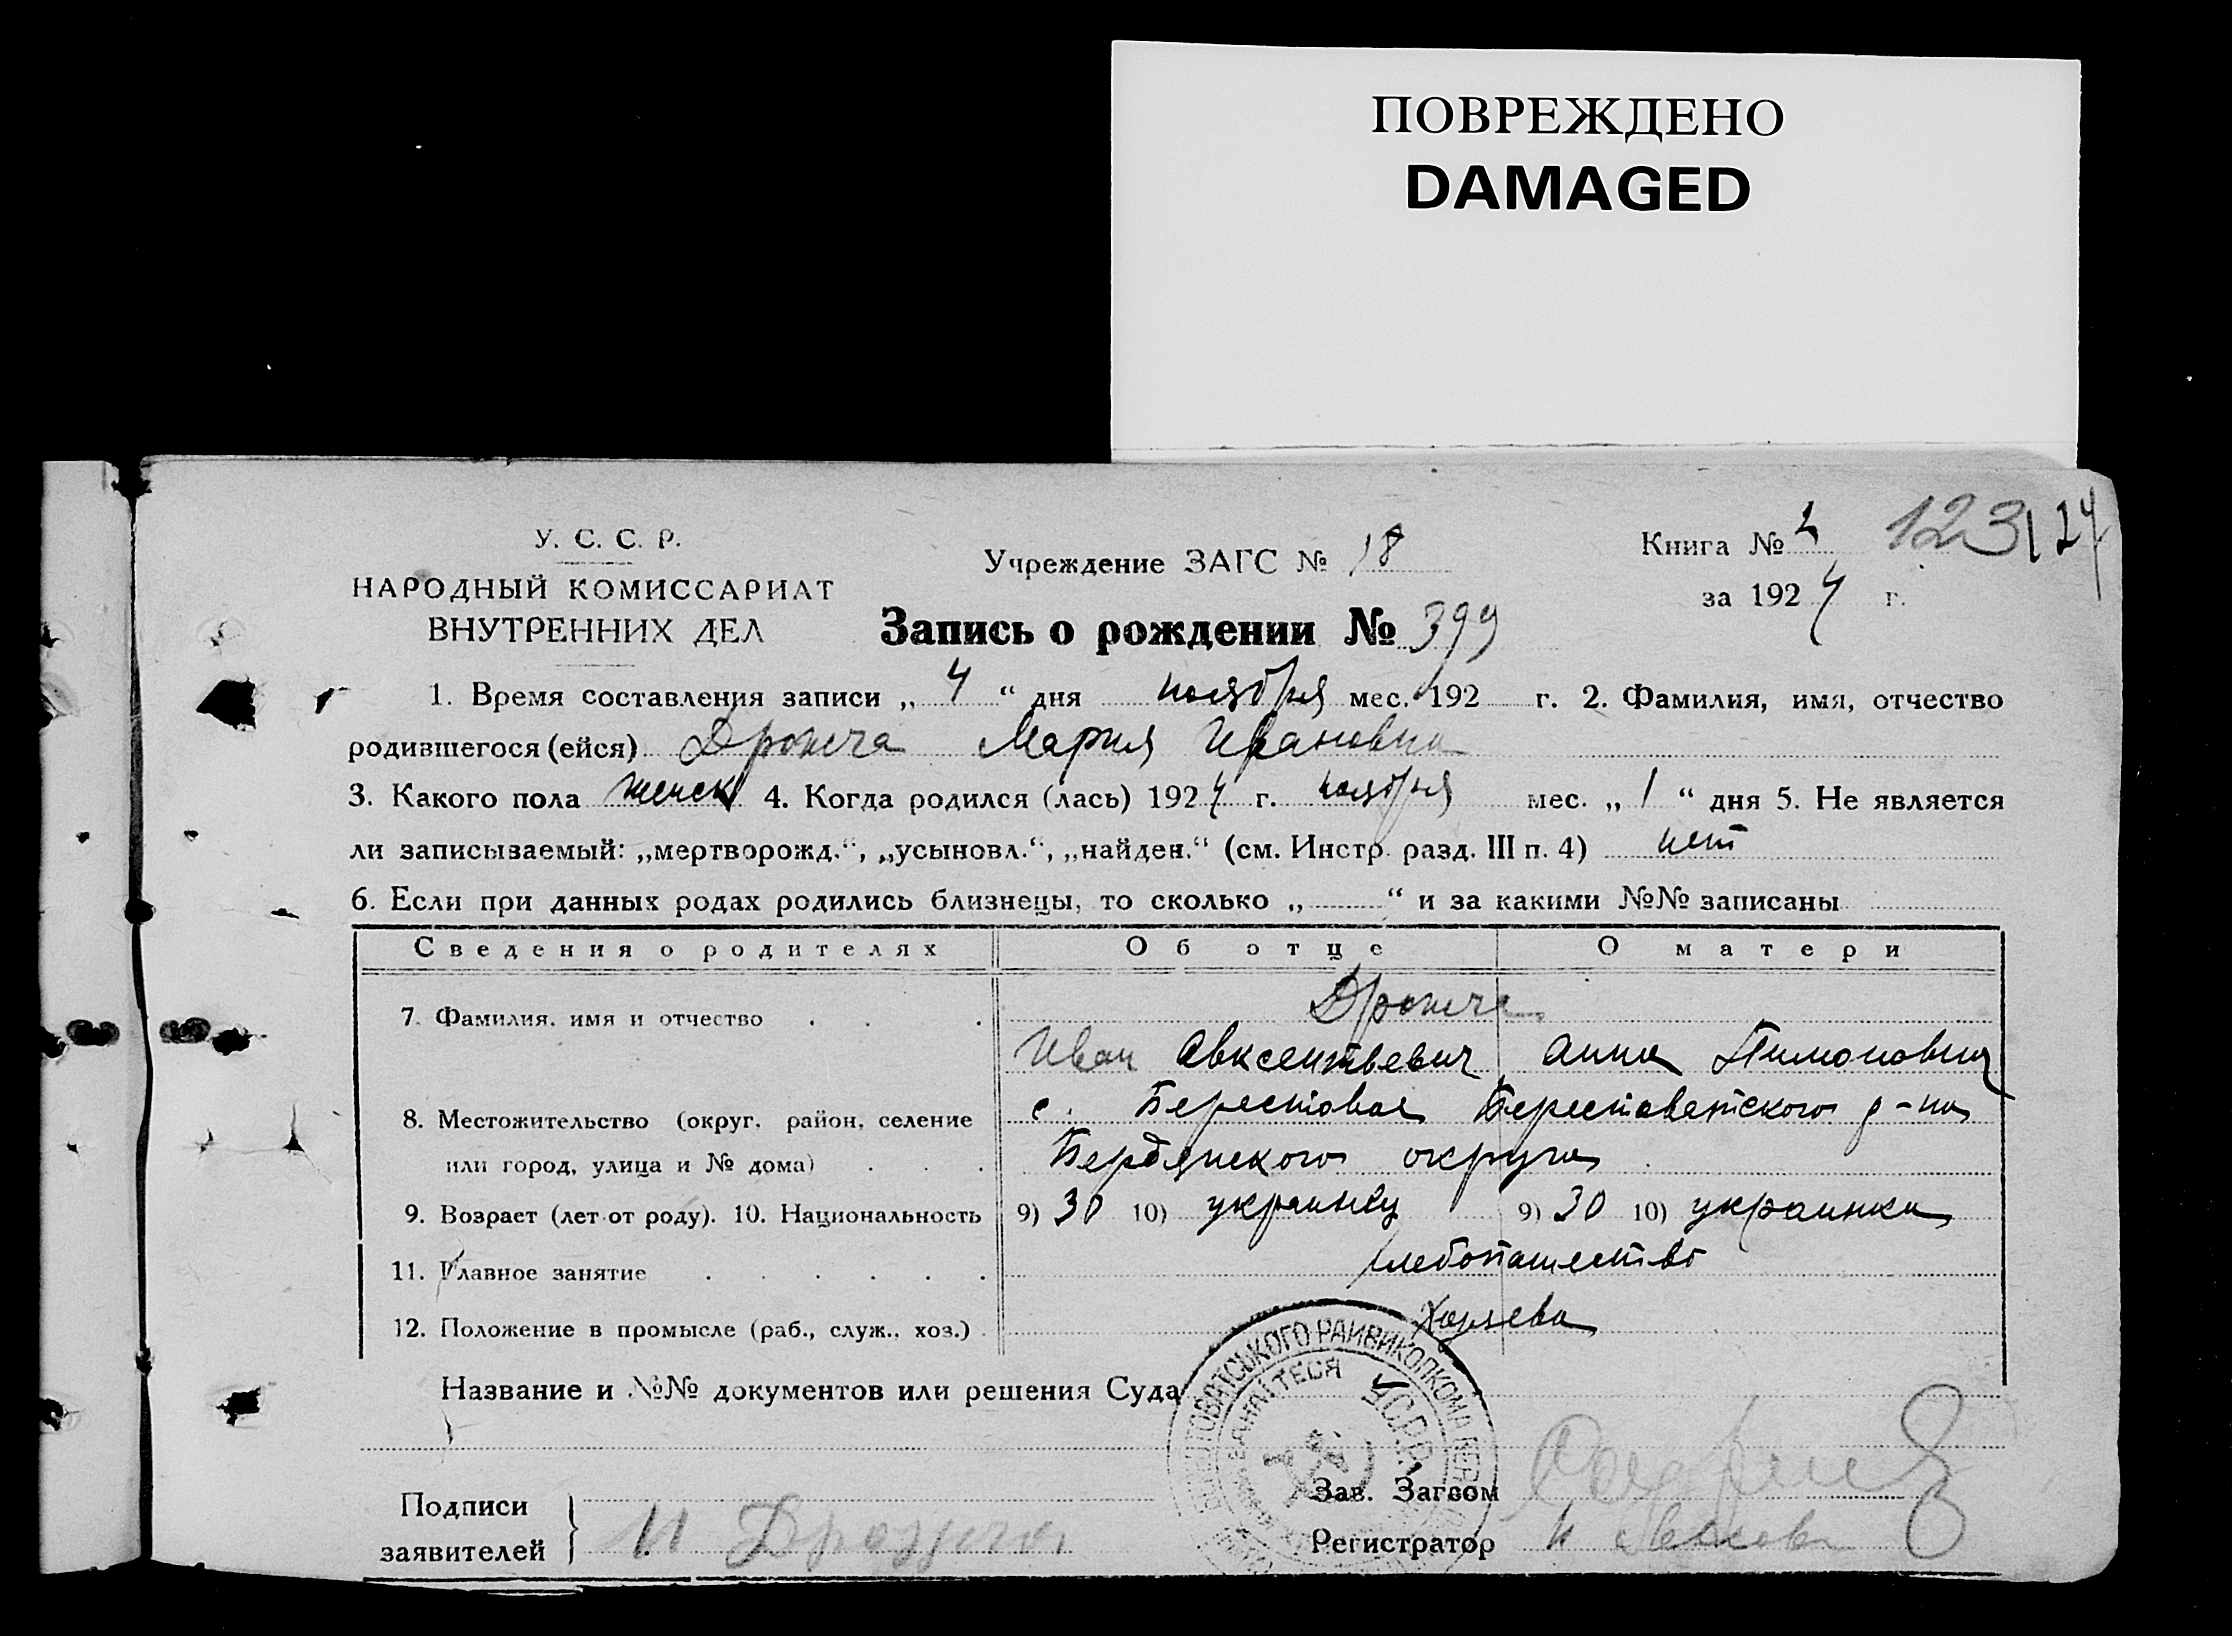 ПОВРЕЖДЕНО
DAMAGED
У. С. С. Р.
НАРОДНЫЙ КОМИССАРИАТ
ВНУТРЕННИХ ДЕЛ
Учреждение ЗАГС № 18
Книга № 2 123 124
за 1924 г.
Запись о рождении № 399
1. Время составления записи „ 4 “ дня ноября мес. 192 г. 2. Фамилия, имя, отчество
родившегося (ейся) Мария Ивановна
3. Какого пола женск 4. Когда родился (лась) 1924 г. ноября мес. „ 1 “ дня 5. Не является
ли записываемый: „мертворожд.“, „усыновл.“, „найден.“ (см. Инстр. разд. III п. 4) нет
6. Если при данных родах родились близнецы, то сколько „ “ и за какими №№ записаны
Сведения о родителях Об отце О матери
7. Фамилия, имя и отчество
Иван Авксентьевич Анна
8. Местожительство (округ, район, селение с. Берестовая Берестоватского р-на
или город, улица и № дома) Бердянского округа
9. Возраст (лет от роду). 10. Национальность 9) 30 10) украинец 9) 30 10) украинка
11. Главное занятие хлебопашество
12. Положение в промысле (раб., служ., хоз.) хозяева
Название и №№ документов или решения Суда
РАЙВИКОПКОМА
ЄДНАЙТЕСЯ
УСРР
Подписи
заявителей И
Зав. Загсом
Регистратор